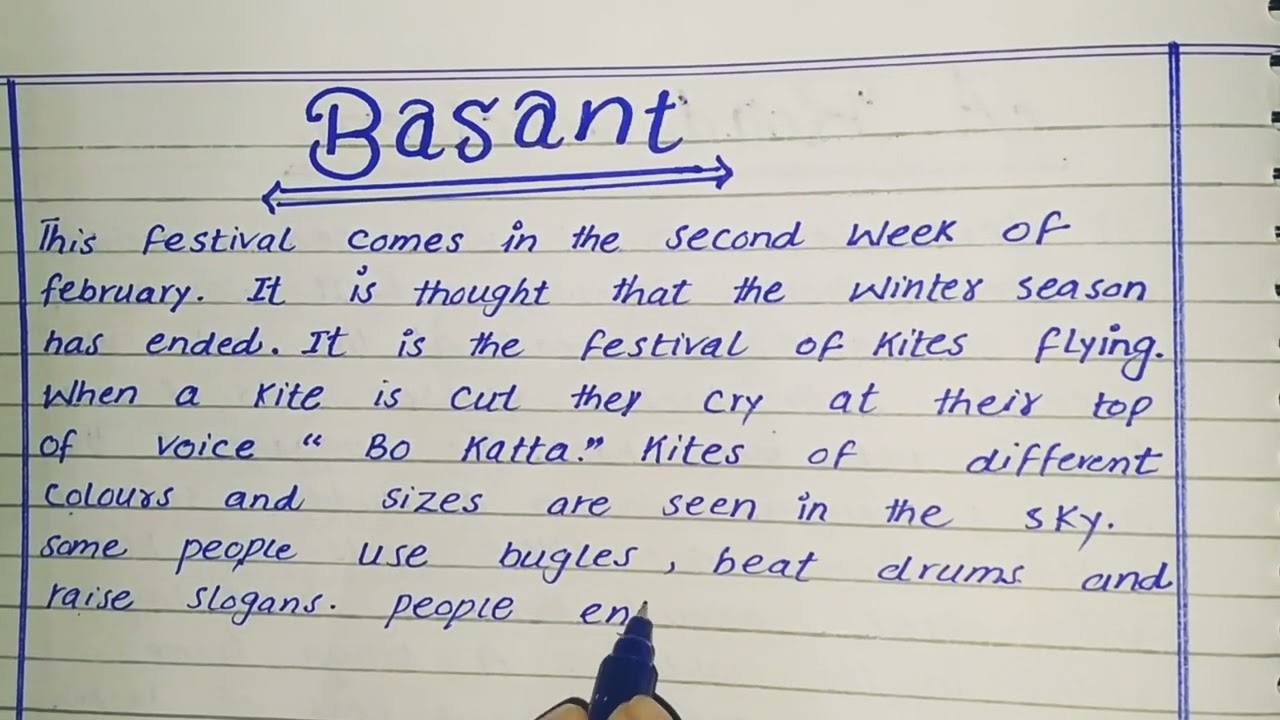 Basant
This festival comes in the second week of
february. It is thought that the winter season
has ended. It is the festival of Kites flying.
When a Kite is cut they cry at their top
of voice “ Bo Katta.” Kites of different
colours and sizes are seen in the sky.
some people use bugles, beat drums and
raise slogans. people en